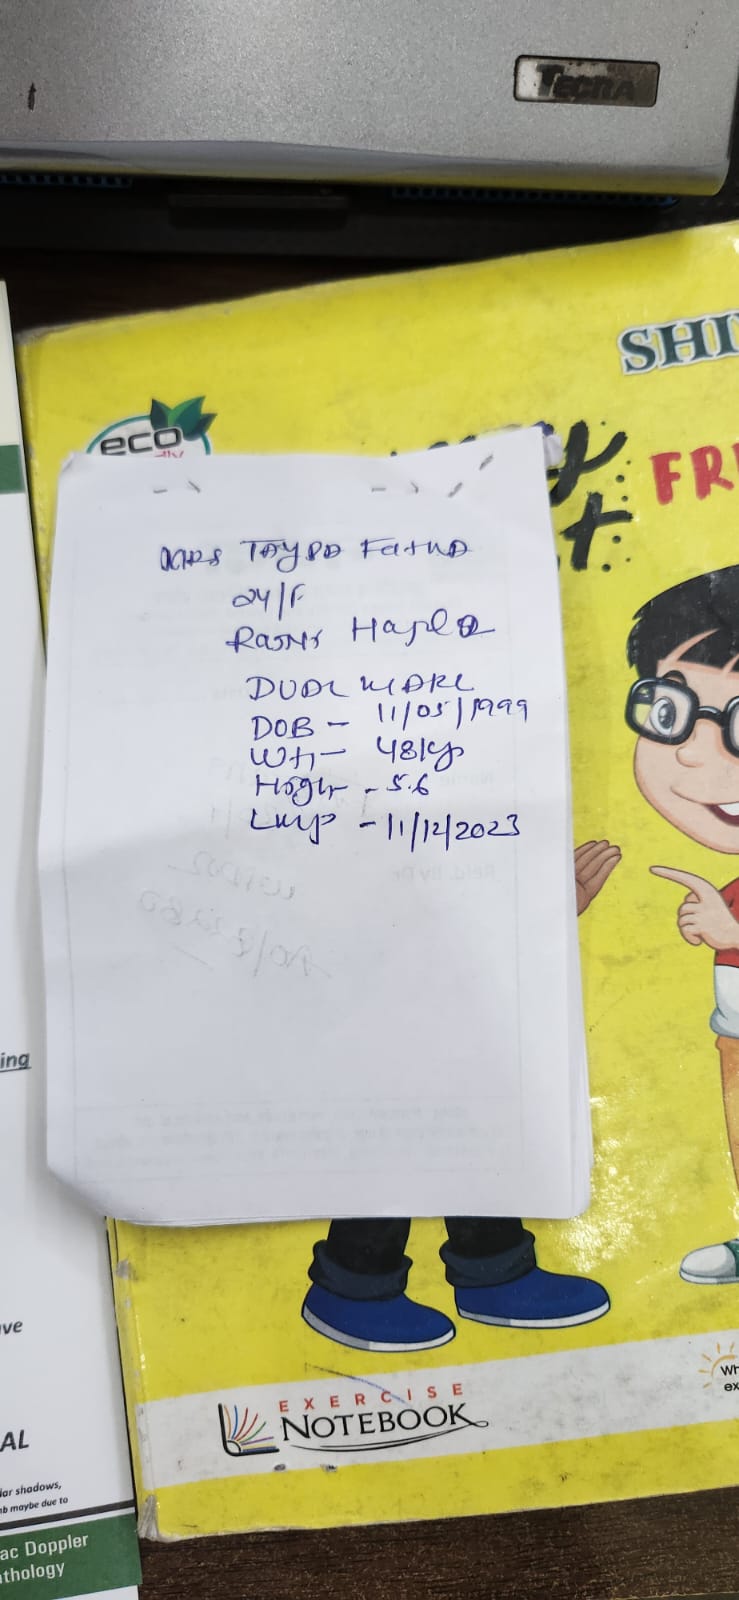 TECRA
SHI
eco
FRI
MRS TAYBA Fatma
24/F
DUAL MARK
DOB - 11/05/1999
Wt - 48kg
Hight - 5.6
LMP - 11/12/2023
ing
ve
AL
lar shadows,
nb maybe due to
ac Doppler
thology
EXERCISE
NOTEBOOK
Wh
ex